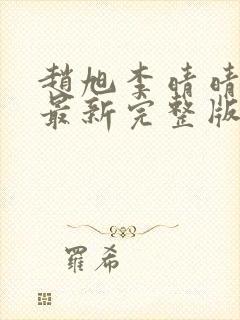 趙旭李晴晴
最新完整版
羅希